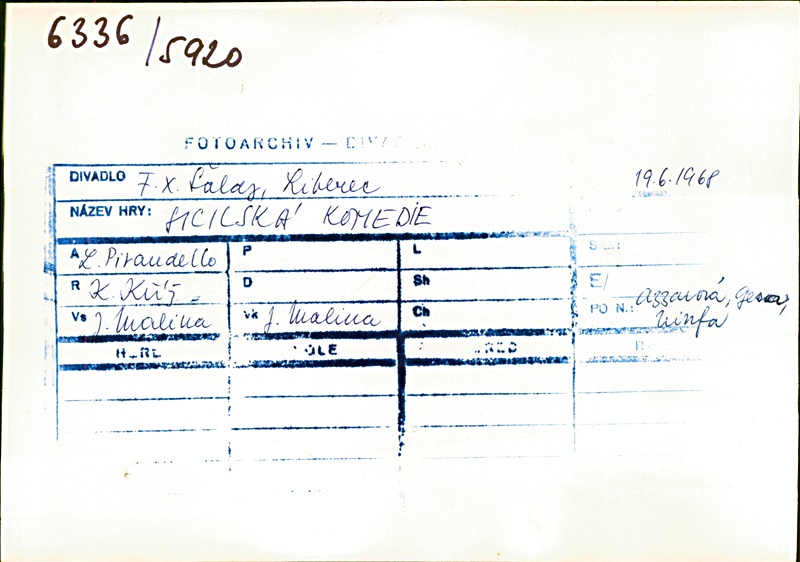 6336/5920
FOTOARCHIV —
DIVADLO F. X. Šaldy, Liberec 19.6.1968
NÁZEV HRY: SICILSKÁ KOMEDIE
A L. Pirandello P L
R K. Kříž D Sh E/
Vs J. Malina vk J. Malina Ch PO N.:
Ninfa